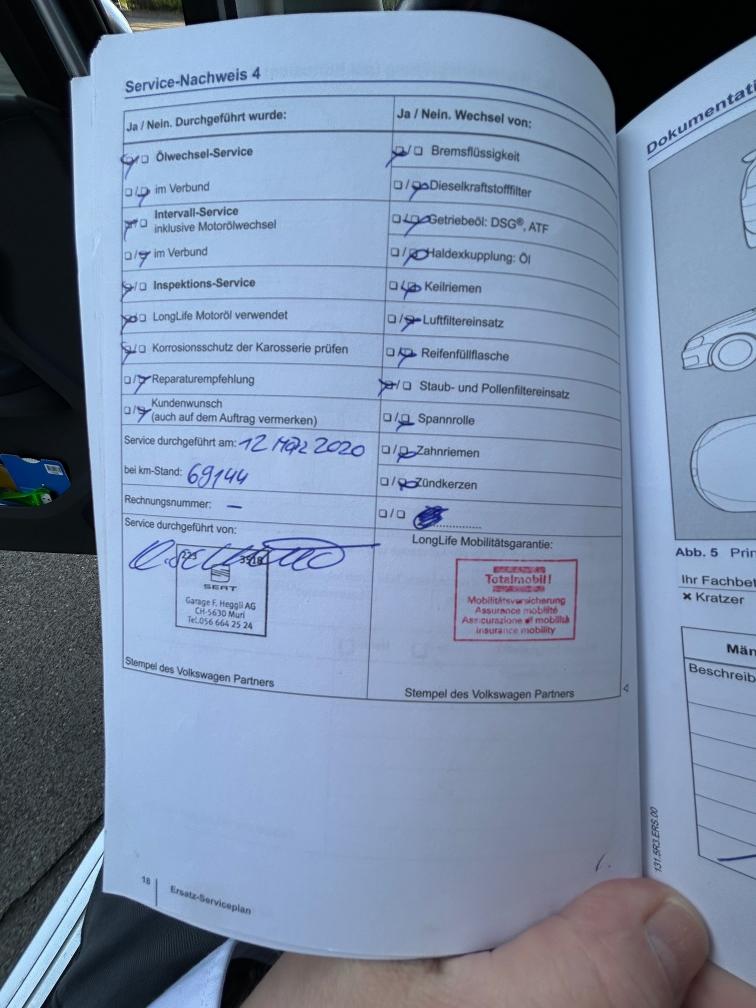 Service-Nachweis 4
Ja / Nein. Durchgeführt wurde:
Ölwechsel-Service
im Verbund
Intervall-Service
inklusive Motorölwechsel
im Verbund
Inspektions-Service
LongLife Motoröl verwendet
Korrosionsschutz der Karosserie prüfen
Reparaturempfehlung
Kundenwunsch
(auch auf dem Auftrag vermerken)
Service durchgeführt am: 12 März 2020
bei km-Stand: 69144
Rechnungsnummer: –
Service durchgeführt von:
SEAT
Garage F. Heggli AG
CH-5630 Muri
Tel.056 664 25 24
Stempel des Volkswagen Partners
Ja / Nein. Wechsel von:
Bremsflüssigkeit
Dieselkraftstofffilter
Getriebeöl: DSG®, ATF
Haldexkupplung: Öl
Keilriemen
Luftfiltereinsatz
Reifenfüllflasche
Staub- und Pollenfiltereinsatz
Spannrolle
Zahnriemen
Zündkerzen
LongLife Mobilitätsgarantie:
Totalmobil!
Mobilitätsversicherung
Assurance mobilité
Assicurazione di mobilità
insurance mobility
Stempel des Volkswagen Partners
18
Ersatz-Serviceplan
Abb. 5
Ihr
× Kratzer
131.5R3.ERS.00